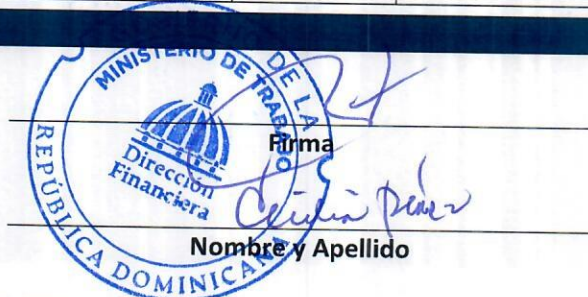 MINISTERIO DE TRABAJO
DE LA
REPÚBLICA DOMINICANA
Dirección
Financiera
Firma
Nombre y Apellido